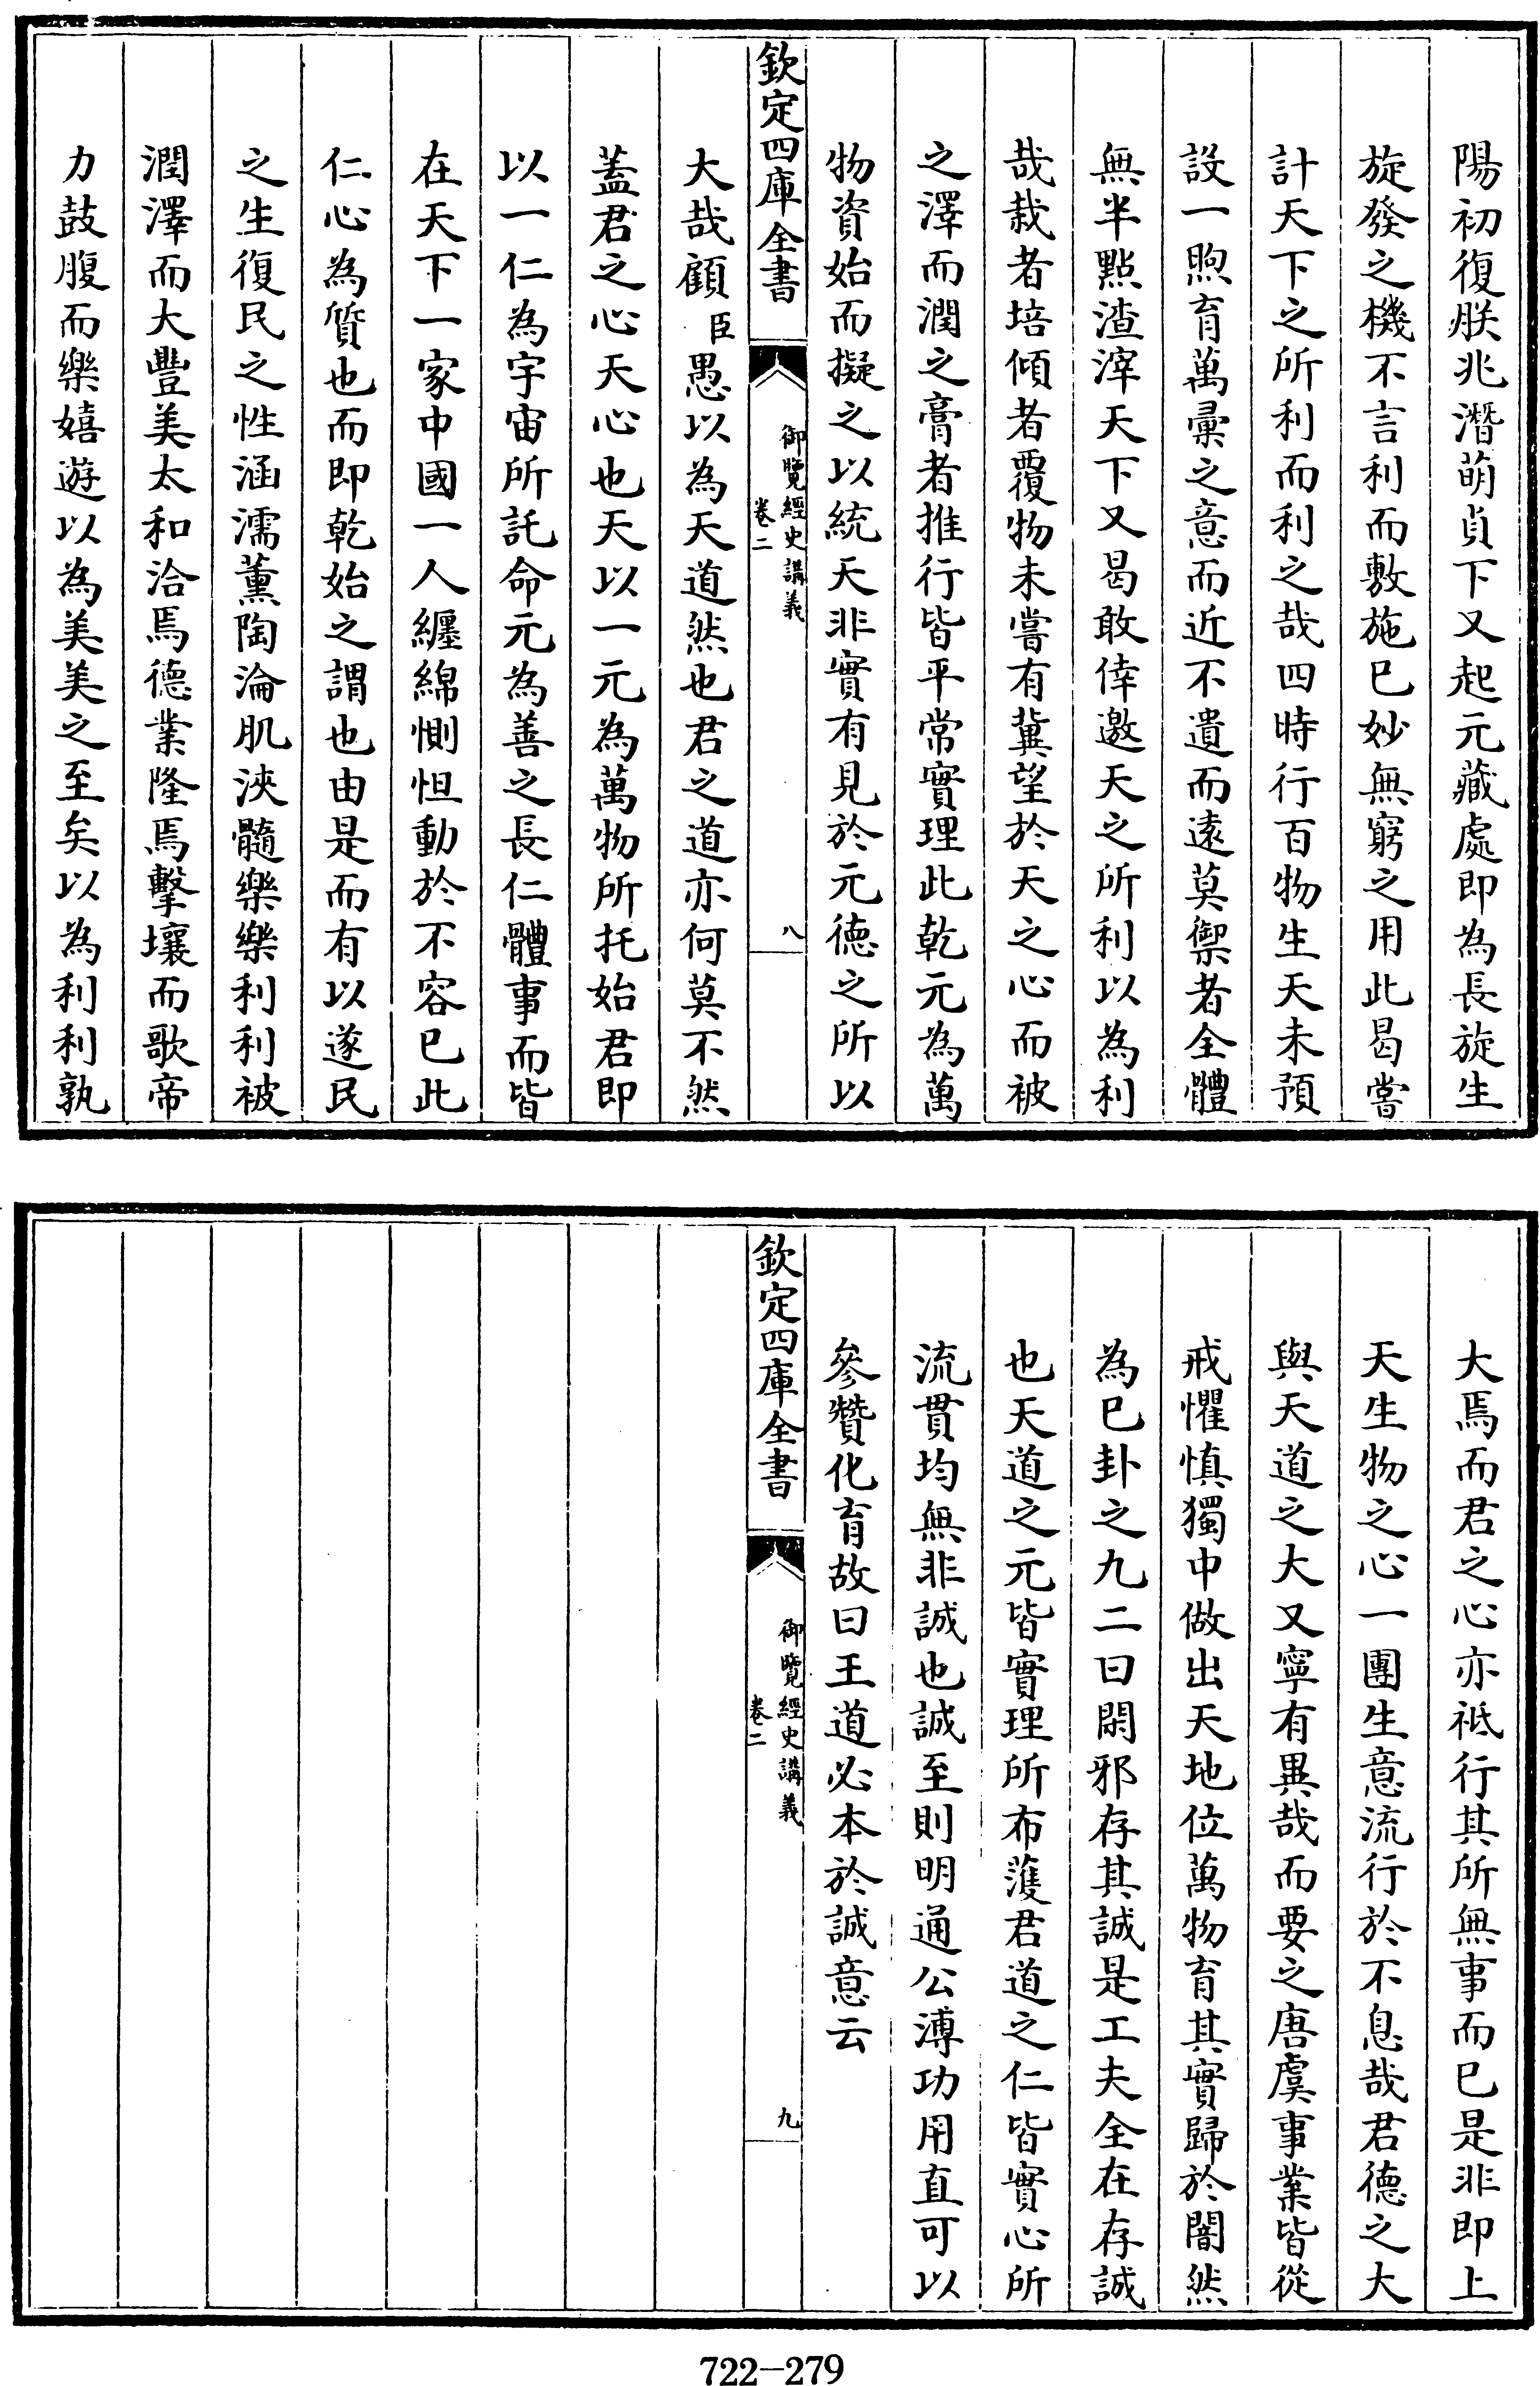 陽初復朕兆潛萌貞下又起元藏處即為長旋生
旋發之機不言利而敷施已妙無窮之用此曷嘗
計天下之所利而利之哉四時行百物生天未預
設一煦育萬彚之意而近不遺而遠莫禦者全體
無半點渣滓天下又曷敢倖邀天之所利以為利
哉栽者培傾者覆物未嘗有冀望於天之心而被
之澤而潤之膏者推行皆平常實理此乾元為萬
物資始而擬之以統天非實有見於元德之所以
欽定四庫全書
御覽經史講義
卷二
八
大哉顧臣愚以為天道然也君之道亦何莫不然
蓋君之心天心也天以一元為萬物所托始君即
以一仁為宇宙所託命元為善之長仁體事而皆
在天下一家中國一人纏綿惻怛動於不容已此
仁心為質也而即乾始之謂也由是而有以遂民
之生復民之性涵濡薰陶淪肌浹髓樂樂利利被
潤澤而大豐美太和洽焉德業隆焉擊壤而歌帝
力鼓腹而樂嬉遊以為美美之至矣以為利利孰
大焉而君之心亦祗行其所無事而已是非即上
天生物之心一團生意流行於不息哉君德之大
與天道之大又寧有異哉而要之唐虞事業皆從
戒懼慎獨中做出天地位萬物育其實歸於闇然
為己卦之九二曰閑邪存其誠是工夫全在存誠
也天道之元皆實理所布濩君道之仁皆實心所
流貫均無非誠也誠至則明通公溥功用直可以
參贊化育故曰王道必本於誠意云
欽定四庫全書
御覽經史講義
卷二
九
722-279